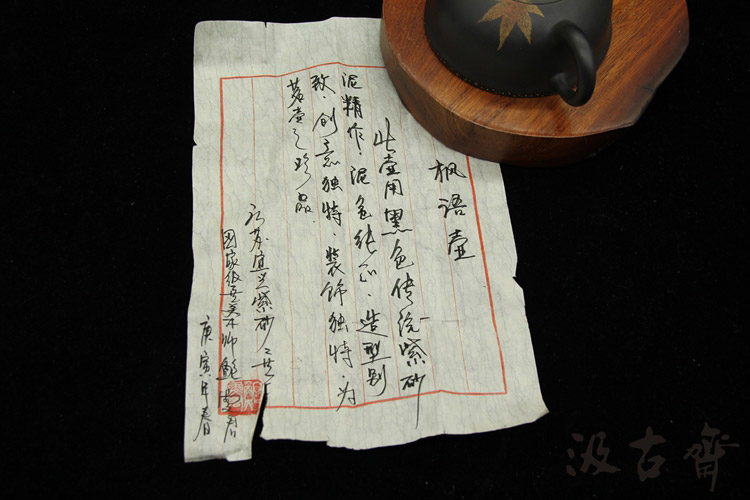 枫语壶
此壶用黑色传统紫砂
泥精作．泥色纯正．造型别
致．创意独特．装饰独特．为
茗壶之珍品．
江苏宜兴紫砂二艺厂
国家级工艺美术师鲍
庚寅年春
汲古齋